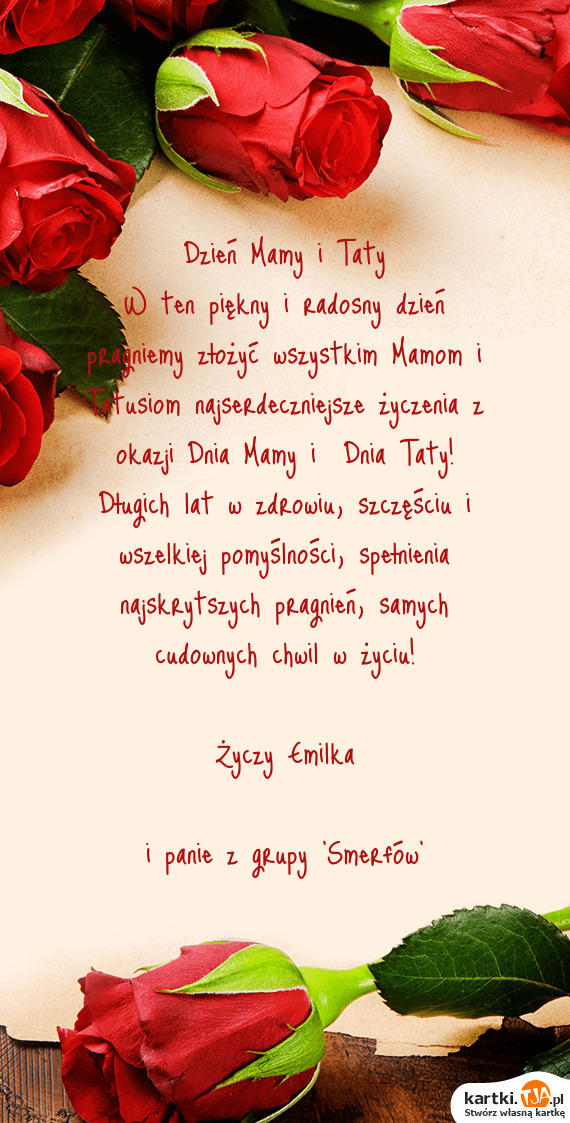 Dzień Mamy i Taty
W ten piękny i radosny dzień
pragniemy złożyć wszystkim Mamom i
Tatusiom najserdeczniejsze życzenia z
okazji Dnia Mamy i Dnia Taty!
Długich lat w zdrowiu, szczęściu i
wszelkiej pomyślności, spełnienia
najskrytszych pragnień, samych
cudownych chwil w życiu!
Życzy Emilka
i panie z grupy "Smerfów"
kartki.TJA.pl
Stwórz własną kartkę